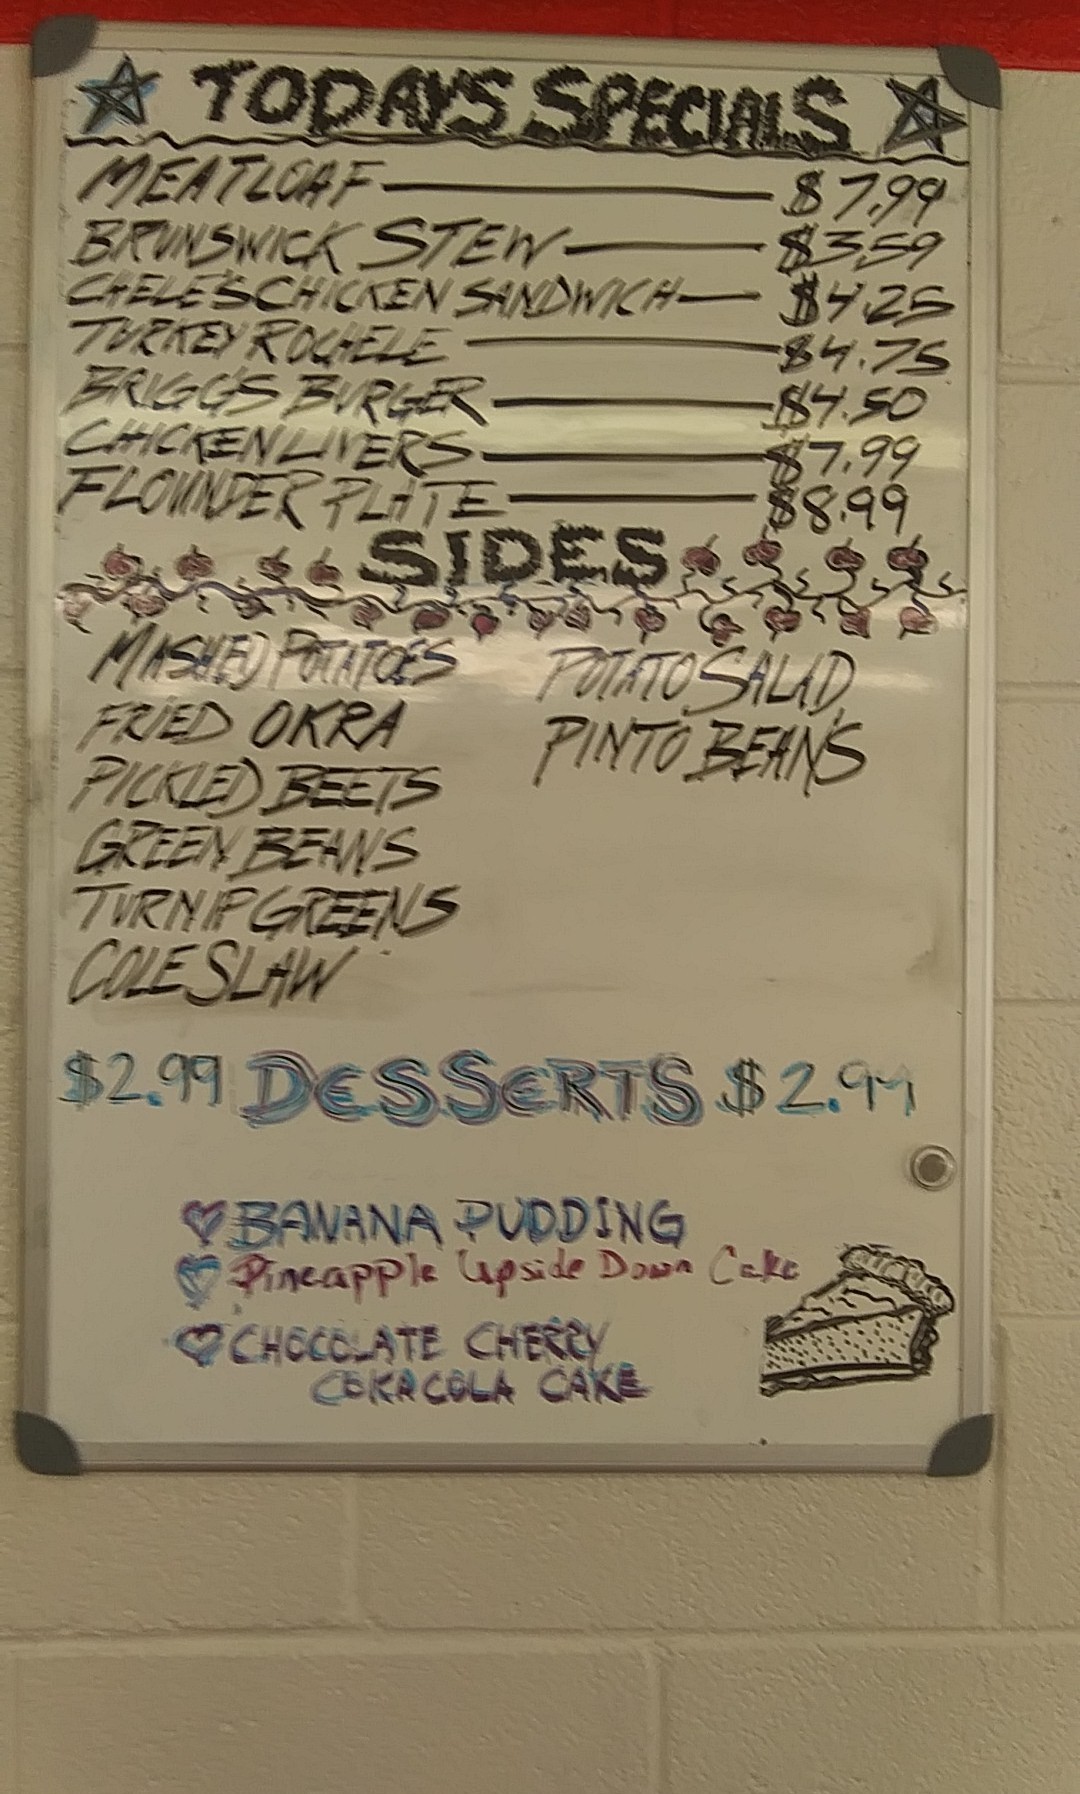 TODAYS SPECIALS
MEATLOAF $7.99
BRUNSWICK STEW $3.59
CHELE'S CHICKEN SANDWICH $4.25
TURKEY ROCHELE $4.75
BRIGG'S BURGER $4.50
CHICKEN LIVERS $7.99
FLOUNDER PLATE $8.99
SIDES
MASHED POTATOES
FRIED OKRA
PICKLED BEETS
GREEN BEANS
TURNIP GREENS
COLE SLAW
POTATO SALAD
PINTO BEANS
$2.99 DESSERTS $2.99
BANANA PUDDING
Pineapple Upside Down Cake
CHOCOLATE CHERRY
COKACOLA CAKE